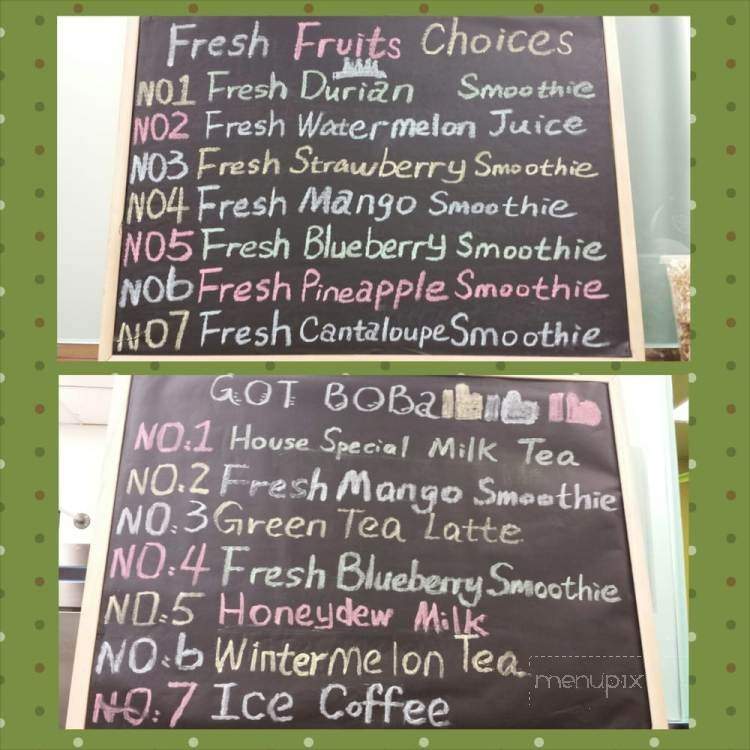 Fresh Fruits Choices
NO1 Fresh Durian Smoothie
NO2 Fresh Watermelon Juice
NO3 Fresh Strawberry Smoothie
NO4 Fresh Mango Smoothie
NO5 Fresh Blueberry Smoothie
NO6 Fresh Pineapple Smoothie
NO7 Fresh Cantaloupe Smoothie
GOT BOBa
NO.1 House Special Milk Tea
NO.2 Fresh Mango Smoothie
NO.3 Green Tea Latte
NO.4 Fresh Blueberry Smoothie
NO.5 Honeydew Milk
NO.6 Wintermelon Tea
menupix
NO.7 Ice Coffee